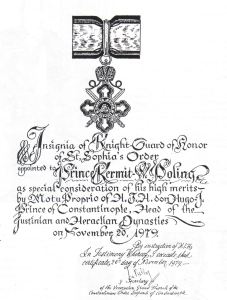 Insignia of Knight-Guard of Honor
of St. Sophia's Order
appointed to Prince Kermit Poling
as special consideration of his high merits
by Motu Proprio of H.I.H. don Hugo J.
Prince of Constantinople, Head of the
Justinian and Heraclian Dynasties
on November 20, 1979.
By instruction of H.I.H.
In Testimony Whereof, I execute this
certificate, 20th day of November 1979.
Secretary
of the